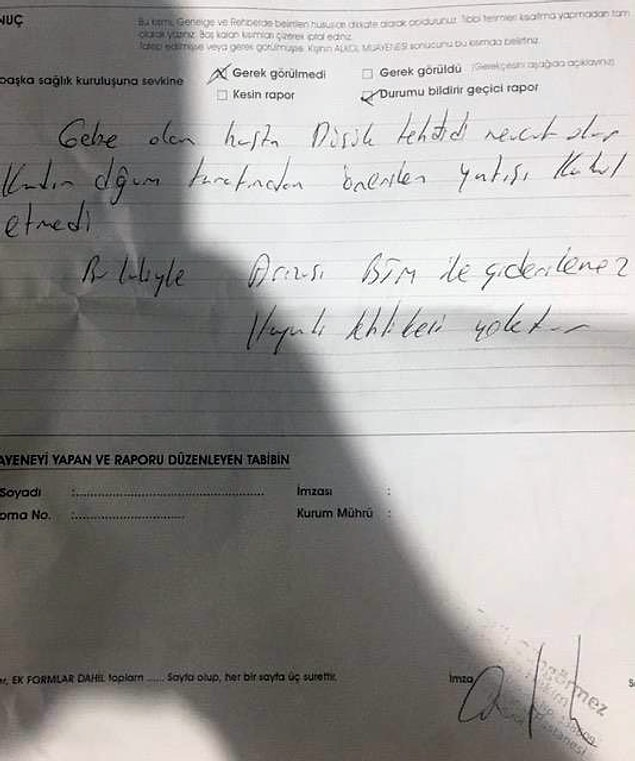 NUÇ
Bu kısmı, Genelge ve Rehberde belirtilen hususları dikkate alarak doldurunuz. Tıbbi terimleri kısaltma yapmadan tam
olarak yazınız. Boş kalan kısımları çizerek iptal ediniz.
Talep edilmişse veya gerek görülmüşse, Kişinin ALKOL MUAYENESİ sonucunu bu kısımda belirtiniz.
başka sağlık kuruluşuna sevkine
Gerek görülmedi
Gerek görüldü (Gerekçesini aşağıda açıklayınız)
Kesin rapor
Durumu bildirir geçici rapor
Gebe olan hasta Düşük tehtidi mevcut olup
Kadın dğum tarafından önerilen yatışı Kabul
etmedi
Bu haliyle Arızası BTM ile giderilemez
Hayati tehlikesi yoktur
AYENEYİ YAPAN VE RAPORU DÜZENLEYEN TABİBİN
Soyadı :
İmzası :
oma No. :
Kurum Mührü :
r, EK FORMLAR DAHİL toplam ...... Sayfa olup, her bir sayfa üç surettir.
İmza